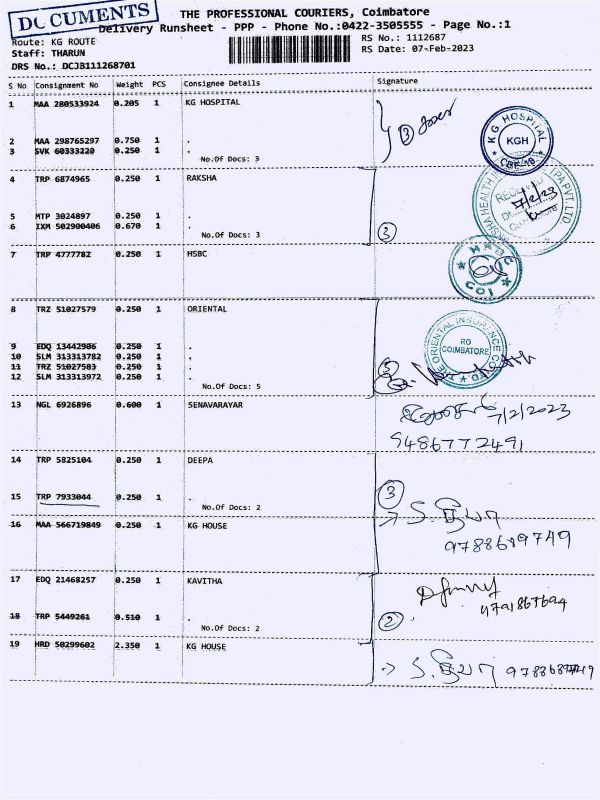 DOCUMENTS
THE PROFESSIONAL COURIERS, Coimbatore
Delivery Runsheet - PPP - Phone No.:0422-3505555 - Page No.:1
Route: KG ROUTE
RS No.: 1112687
Staff: THARUN
RS Date: 07-Feb-2023
DRS No.: DCJB111268701
S No Consignment No Weight PCS Consignee Details Signature
1 MAA 280533924 0.205 1 KG HOSPITAL
3
KG HOSPITAL
KGH
CBE-18
2 MAA 298765297 0.750 1 .
3 SVK 60333220 0.250 1 .
No.Of Docs: 3
4 TRP 6874965 0.250 1 RAKSHA
7/2/23
5 MTP 3024897 0.250 1 .
6 IXM 502900406 0.670 1 .
No.Of Docs: 3
3
7 TRP 4777782 0.250 1 HSBC
COI
8 TRZ 51027579 0.250 1 ORIENTAL
THE ORIENTAL INSURANCE CO LTD
RO
COIMBATORE
9 EDQ 13442906 0.250 1 .
10 SLM 313313782 0.250 1 .
11 TRZ 51027583 0.250 1 .
12 SLM 313313972 0.250 1 .
No.Of Docs: 5
5
13 NGL 6926896 0.600 1 SENAVARAYAR
7/2/2023
9486772491
14 TRP 5825104 0.250 1 DEEPA
15 TRP 7933044 0.250 1 .
No.Of Docs: 2
3
16 MAA 566719849 0.250 1 KG HOUSE
9788689749
17 EDQ 21468257 0.250 1 KAVITHA
18 TRP 5449261 0.510 1 .
No.Of Docs: 2
2
19 HRD 50299602 2.350 1 KG HOUSE